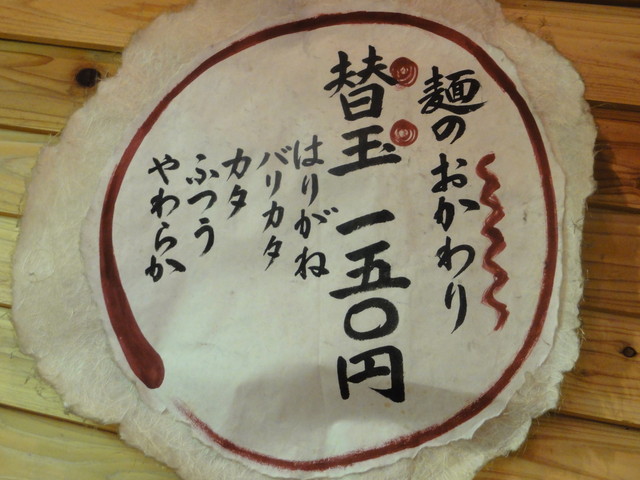 麺のおかわり
替玉 一五〇円
はりがね
バリカタ
カタ
ふつう
やわらか